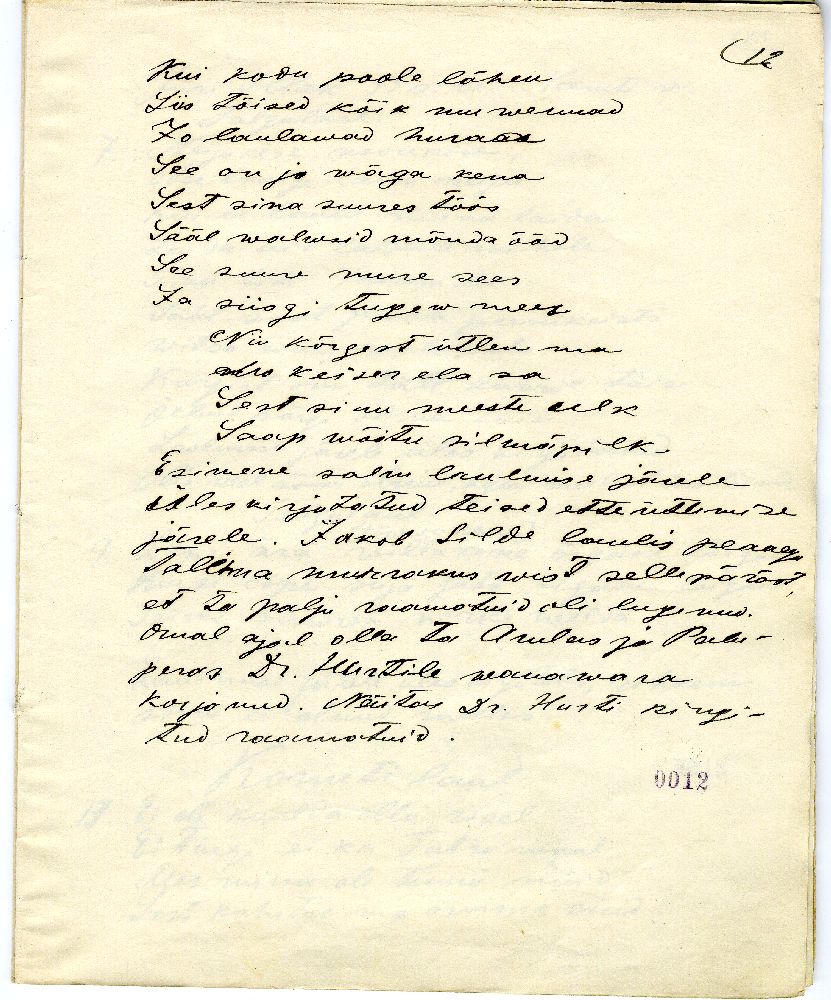 (12
Kui kodu poole lähen
Siis tõised kõik mu wennad
Jo laulawad huraa
See on jo wäga kena
Sest sina suures töös
Sääl walwsid mõnda ööd
See suure mure sees
Ja siisgi tugew mees
Nii kõrgest ütlen ma
keiser ela sa
Sest sinu meeste
Saap wõitu silmäpilk
Esimene salm laulmise järele
üleskirjotatud teised etteütlemise
järele. Jakob Silde laulis peaaegu
Tallina murrakus wist sellepärast,
et ta palju raamatuid oli lugenud.
Omal ajal olla ta Arulas ja Palu-
peras Dr. Hurtile wanawara
korjanud. Näitas Dr. Hurti kingi-
tud raamatuid.
0012